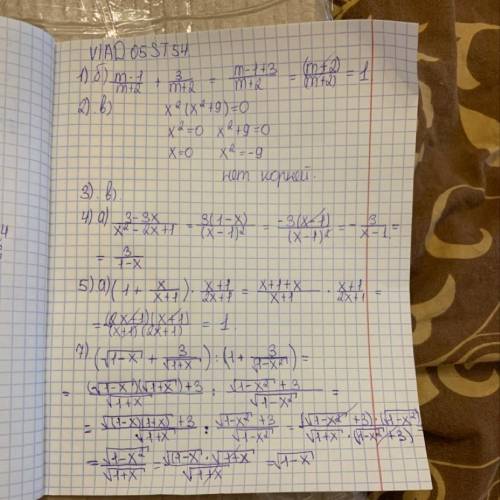 VIAD05ST54
1) б) (m-1)/(m+2) + 3/(m+2) = (m-1+3)/(m+2) = (m+2)/(m+2) = 1
2) в) x²(x²+9)=0
x²=0 x²+9=0
x=0 x²=-9
нет корней.
3) в).
4) а) (3-3x)/(x²-2x+1) = 3(1-x)/(x-1)² = -3(x-1)/(x-1)² = -3/(x-1) =
= 3/(1-x)
5) а) (1 + x/(x+1)) · (x+1)/(2x+1) = (x+1+x)/(x+1) · (x+1)/(2x+1) =
= (2x+1)(x+1)/(x+1)(2x+1) = 1.
7) (√(1-x) + 3/√(1+x)) : (1 + 3/√(1-x²)) =
= ((√(1-x))(√(1+x))+3)/√(1+x) : (√(1-x²)+3)/√(1-x²) =
= (√((1-x)(1+x))+3)/√(1+x) : (√(1-x²)+3)/√(1-x²) = (√(1-x²)+3)·(√(1-x²))/(√(1+x)·(√(1-x²)+3)) =
= √(1-x²)/√(1+x) = (√(1-x)·√(1+x))/√(1+x) = √(1-x)